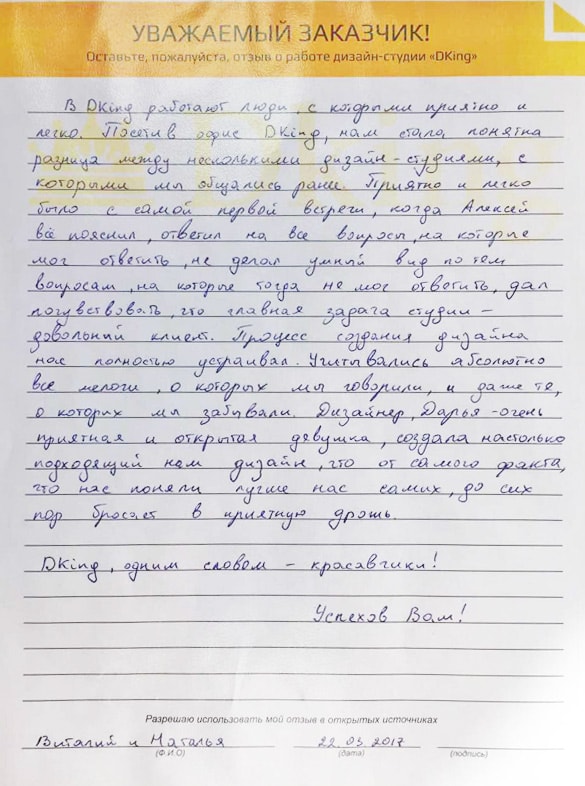 УВАЖАЕМЫЙ ЗАКАЗЧИК!
Оставьте, пожалуйста, отзыв о работе дизайн-студии «DKing»
В DKing работают люди, с которыми приятно и
легко. Посетив офис DKing, нам стала понятна
разница между несколькими дизайн-студиями, с
которыми мы общались ранее. Приятно и легко
было с самой первой встречи, когда Алексей
всё пояснил, ответил на все вопросы, на которые
мог ответить, не делал умный вид по тем
вопросам, на которые тогда не мог ответить, дал
почувствовать, что главная задача студии –
довольный клиент. Процесс создания дизайна
нас полностью устраивал. Учитывались абсолютно
все мелочи, о которых мы говорили, и даже те,
о которых мы забывали. Дизайнер, Дарья - очень
приятная и открытая девушка, создала настолько
подходящий нам дизайн, что от самого факта,
что нас поняли лучше нас самих, до сих
пор бросает в приятную дрожь.
DKing, одним словом – красавчики!
Успехов Вам!
Разрешаю использовать мой отзыв в открытых источниках
Виталий и Наталья 22.03.2017
(Ф.И.О) (дата) (подпись)